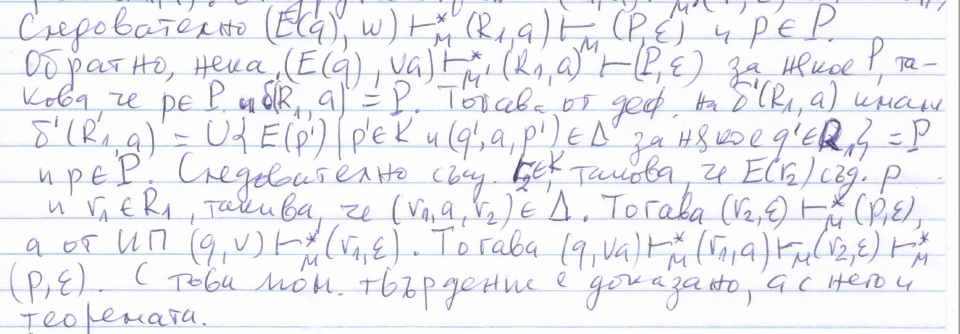 Следователно (E(q), w) ⊢*M (R1, a) ⊢M (P, ε) и p ∈ P.
Обратно, нека (E(q), va) ⊢*M' (R1, a) ⊢ (P, ε) за някое P, та-
кова, че p ∈ P и δ'(R1, a) = P. Тогава от деф. на δ'(R1, a) имаме
δ'(R1, a) = U{ E(p') | p' ∈ K и (q', a, p') ∈ Δ за някое q' ∈ R1 } = P
и p ∈ P. Следователно същ. r2 ∈ K, такова, че E(r2) съд. p
и r1 ∈ R1, такива, че (r1, a, r2) ∈ Δ. Тогава (r2, ε) ⊢*M (p, ε),
а от ИП (q, v) ⊢*M (r1, ε). Тогава (q, va) ⊢*M (r1, a) ⊢M (r2, ε) ⊢*M
(p, ε). С това пом. твърдение е доказано, а с него и
теоремата.